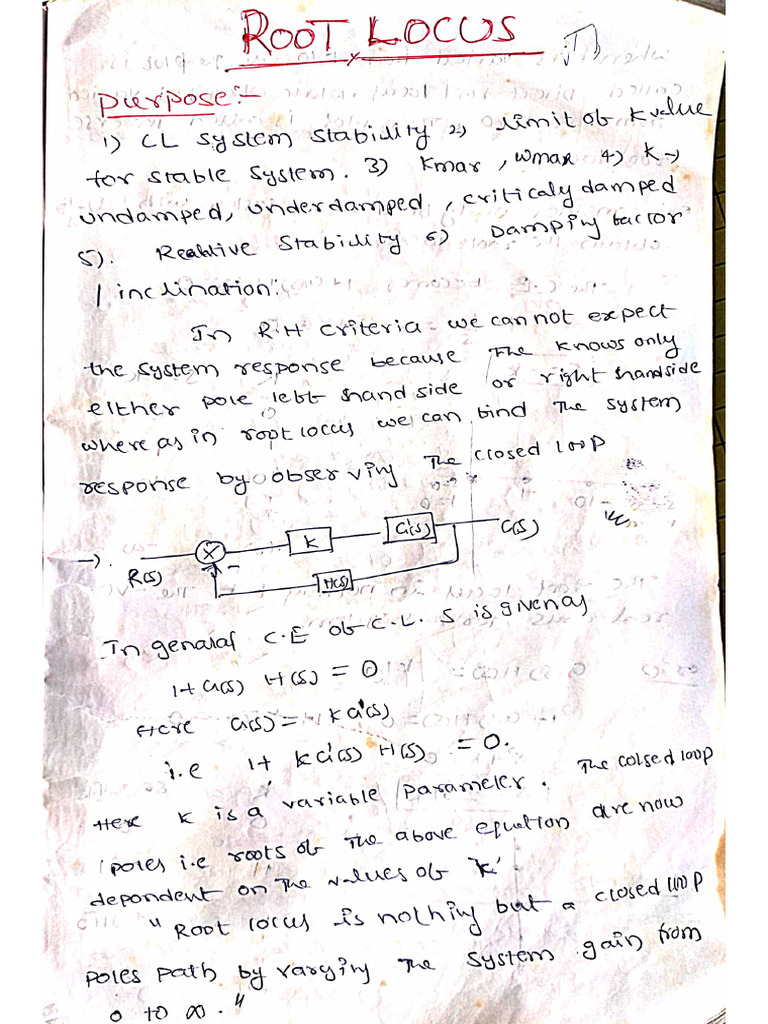 ROOT LOCUS
purpose:-
1) CL system stability 2) limit of K value
for stable system. 3) Kmar, wmax 4) K→
undamped, underdamped, criticaly damped
5). Realtive stability 6) Damping factor
/ inclination:
In R.H criteria we cannot expect
the system response because The knows only
either pole left hand side or right handside
where as in root locus we can find The system
response by observing The closed loop
→).
R(s) × − K G'(s) C(s)
H(s)
In genaral C.E of C.L. S is given as
1+ G(s) H(s) = 0
Here G(s) = KG'(s)
i.e 1+ KG'(s) H(s) = 0.
Here K is a variable parameter. The colsed loop
poles i.e roots of The above equation are now
dependent on The values of 'K'
" Root locus is nothing but a closed loop
poles path by varying The system gain from
0 to ∞."